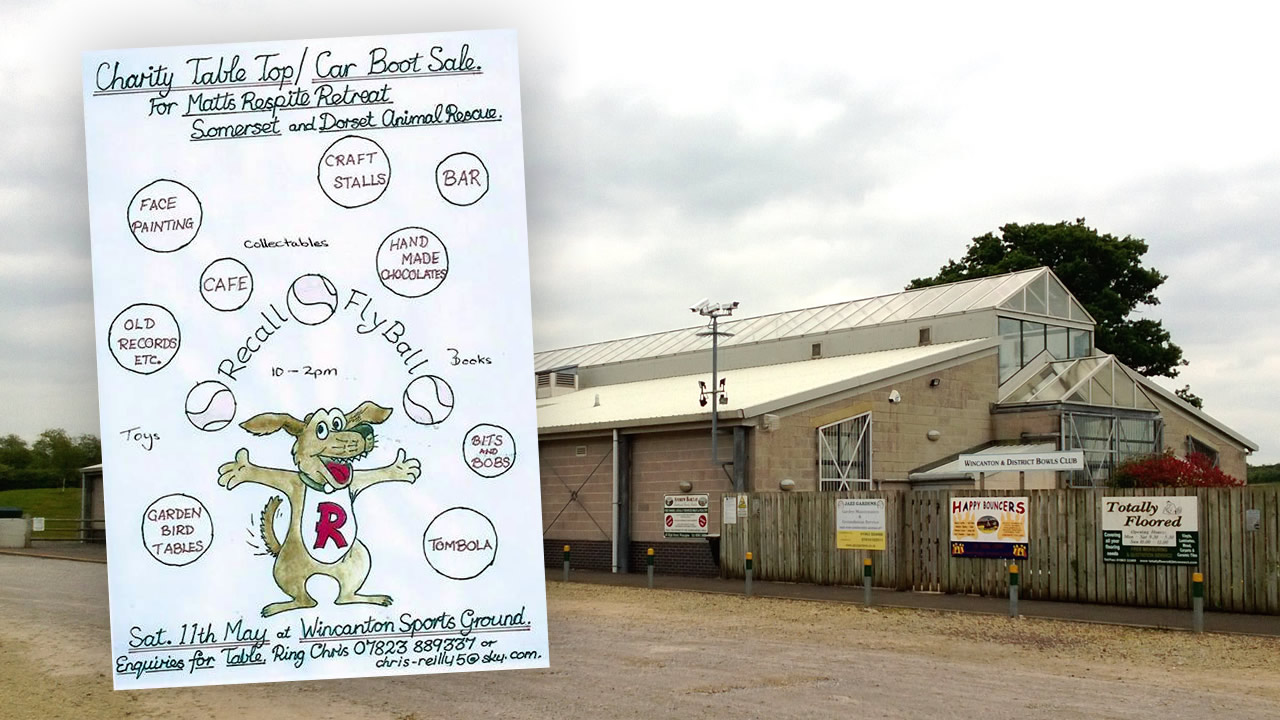 Charity Table Top/ Car Boot Sale.
For Matts Respite Retreat
Somerset and Dorset Animal Rescue.
CRAFT
STALLS
BAR
FACE
PAINTING
Collectables
HAND
MADE
CHOCOLATES
CAFE
OLD
RECORDS
ETC.
Recall FlyBall
10 - 2pm
Books
Toys
BITS
AND
BOBS
R
GARDEN
BIRD
TABLES
TOMBOLA
Sat. 11th May at Wincanton Sports Ground.
Enquiries for Table. Ring Chris 07823 889337 or
chris-reilly5@sky.com.
WINCANTON & DISTRICT BOWLS CLUB
JAZZ GARDENS
HAPPY BOUNCERS
Totally
Floored
Covering
all your
flooring
needs